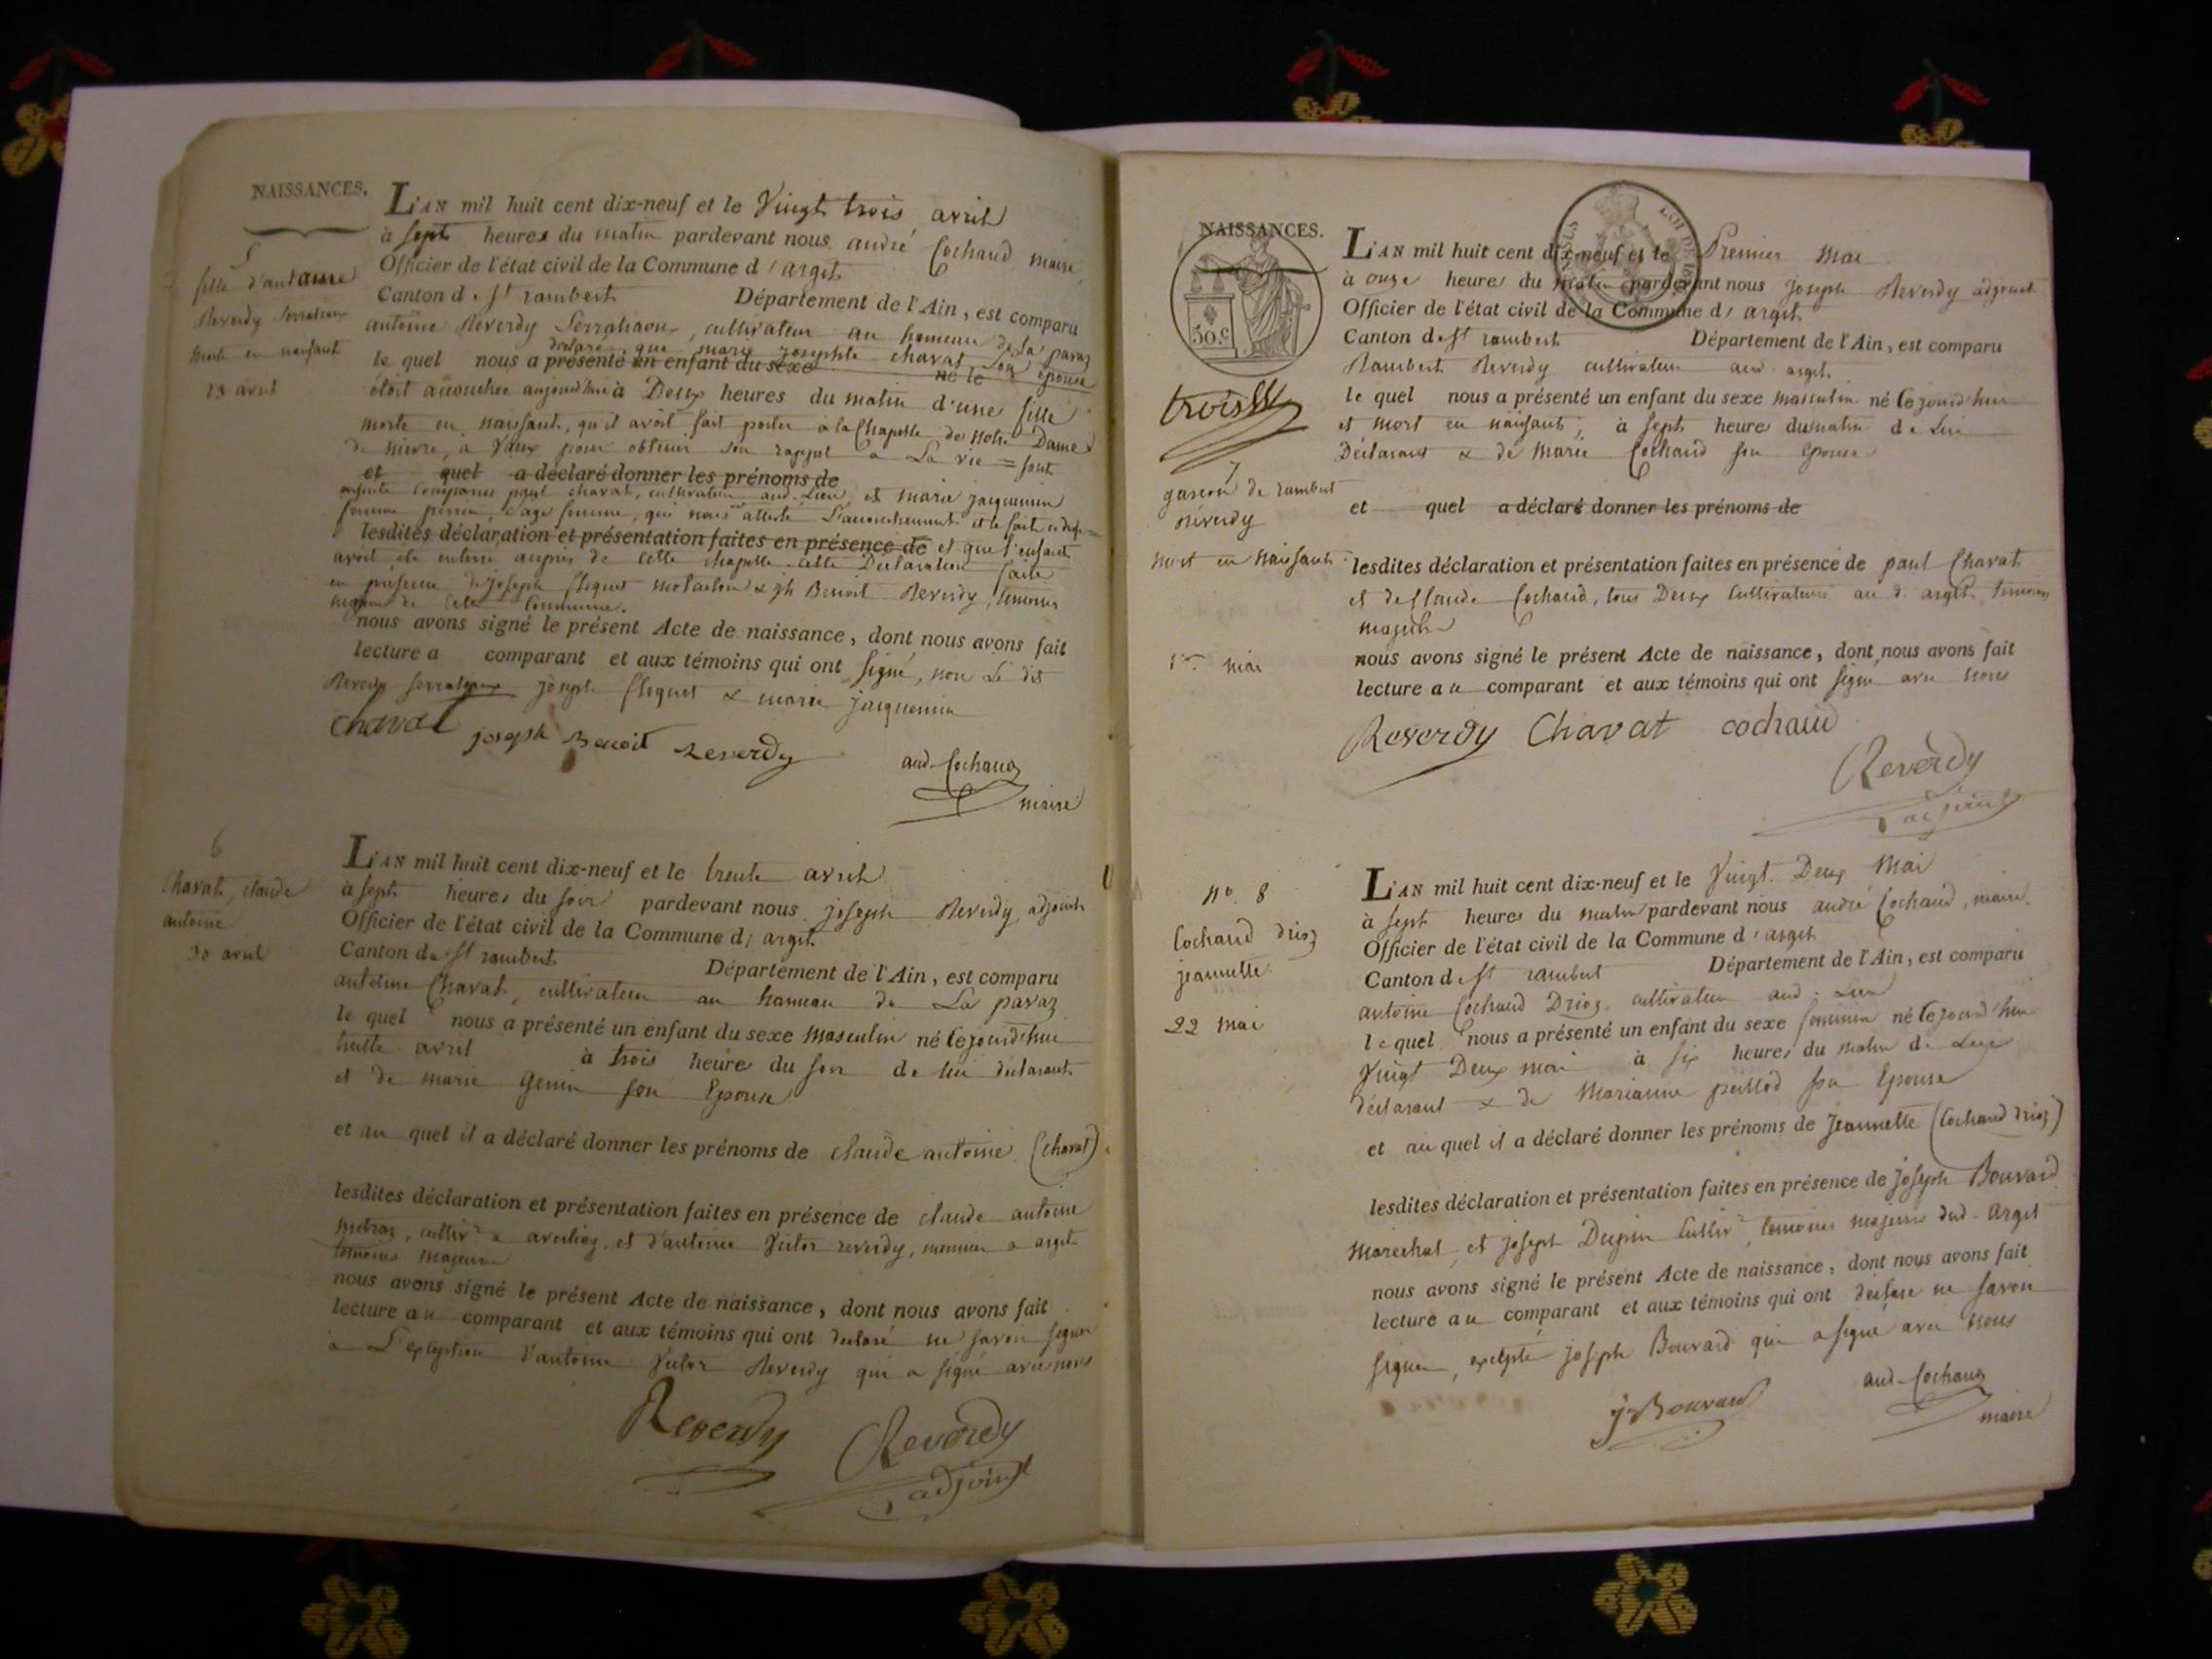 NAISSANCES.
5
fille d'antoine
Reverdy Serraliaoux
morte en naissant
23 avril
L'AN mil huit cent dix-neuf et le Vingt trois avril
à sept heures du matin pardevant nous andré Cochaud maire
Officier de l'état civil de la Commune d'argit
Canton de St rambert Département de l'Ain, est comparu
antoine Reverdy Serraliaoux, cultivateur au hameau de la pavaz
declaré que marie josephte chavat son épouse
le quel nous a présenté un enfant du sexe né le
étoit accouchée aujourd'hui à Deux heures du matin d'une fille
morte en naissant, qu'il avoit fait porter à la Chapelle de Notre Dame
de mievre, à Vaux pour obtenir son rappel a La vie = sont
et quel a déclaré donner les prénoms de
ensuite comparus paul chavat, cultivateur aud. Lieu et marie jacquemin
femme, sage femme, qui nous atteste L'accouchement et le fait cidess=
lesdites déclaration et présentation faites en présence de et que l'enfant
avoit été enterré auprès de cette chapelle. cette Déclaration faite
en présence de joseph Cloquet & jh Benoit Reverdy, temoins
majeurs de Cette Commune.
nous avons signé le présent Acte de naissance, dont nous avons fait
lecture a comparant et aux témoins qui ont signé, non Le dit
Reverdy joseph Cloquet & marie jacquemin
Chavat joseph Benoit Reverdy
and. Cochaud
maire
6
Chavat, claude
antoine
30 avril
L'AN mil huit cent dix-neuf et le trente avril
à sept heures du soir pardevant nous joseph Reverdy adjoint
Officier de l'état civil de la Commune d'argit
Canton de St rambert Département de l'Ain, est comparu
antoine Chavat, cultivateur au hameau de La pavaz
le quel nous a présenté un enfant du sexe masculin né Cejourd'hui
trente avril à trois heures du soir de lui déclarant
et de marie Genin son Epouse
et au quel il a déclaré donner les prénoms de claude antoine (Chavat)
lesdites déclaration et présentation faites en présence de claude antoine
cultivr a, et d'antoine Victor reverdy, meunier a argit
temoins majeurs
nous avons signé le présent Acte de naissance, dont nous avons fait
lecture au comparant et aux témoins qui ont declaré ne savoir signer
a L'exception d'antoine Victor Reverdy qui a signé avec nous
Reverdy Reverdy
adjoint
NAISSANCES.
50.c
trois
7
garcon de rambert
réverdy
mort en naissant
1er mai
L'AN mil huit cent dix-neuf et le Premier mai
à onze heures du matin pardevant nous joseph Reverdy adjoint
Officier de l'état civil de la Commune d'argit
Canton de St rambert Département de l'Ain, est comparu
Rambert Reverdy cultivateur aud. argit
le quel nous a présenté un enfant du sexe masculin né Cejourd'hui
et mort en naissant, à sept heures du matin de Lui
Déclarant & de Marie Cochaud son Epouse
et quel a déclaré donner les prénoms de
lesdites déclaration et présentation faites en présence de paul Chavat
et de Claude Cochaud, tous Deux Cultivateurs au d. argit temoins
majeurs
nous avons signé le présent Acte de naissance, dont nous avons fait
lecture au comparant et aux témoins qui ont signé avec nous
Reverdy Chavat cochaud
Reverdy
adjoint
no. 8
Cochaud drioz
jeannette
22 mai
L'AN mil huit cent dix-neuf et le Vingt Deux Mai
à sept heures du matin pardevant nous andré Cochaud, maire
Officier de l'état civil de la Commune d'argit
Canton de St rambert Département de l'Ain, est comparu
antoine Cochaud Drioz, cultivateur aud. Lieu
le quel nous a présenté un enfant du sexe feminin né Cejourd'hui
Vingt Deux mai à six heures du matin de Lui
déclarant & de Marianne peillod son Epouse
et au quel il a déclaré donner les prénoms de Jeannette (Cochaud drioz)
lesdites déclaration et présentation faites en présence de joseph Bouvard
Marechal, et joseph Dupin Cultivr temoins majeurs dud. argit
nous avons signé le présent Acte de naissance, dont nous avons fait
lecture au comparant et aux témoins qui ont déclaré ne savoir
signer, excepté joseph Bouvard qui a signé avec nous
J Bouvard
and. Cochaud
maire